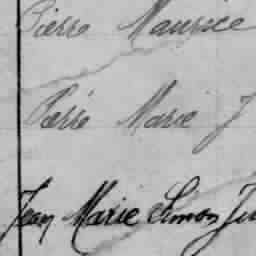 Pierre Maurice
Pierre Marie J
Jean Marie Simon